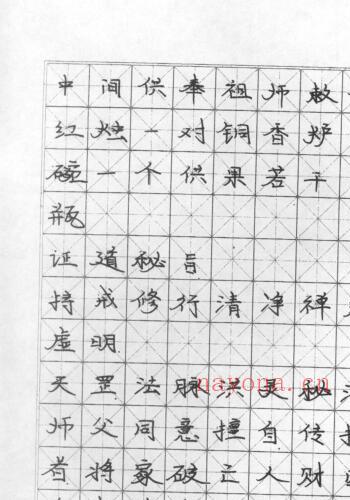 中间供奉祖师敕
红烛一对铜香炉
碗一个供果若干
瓶
证道秘旨
持戒修行清净禅
虚明
天罡法脉洪秘
师父同意擅自传
者将家破亡人财
nayona.cn